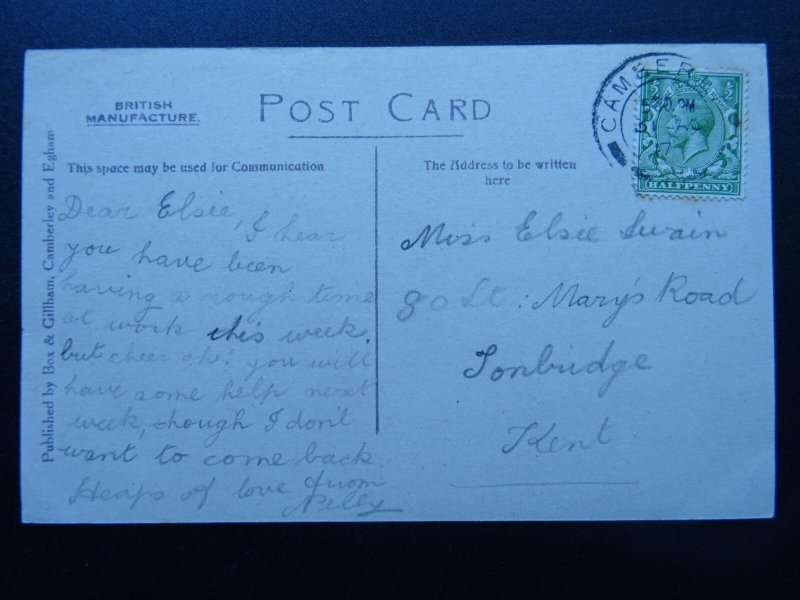 BRITISH
MANUFACTURE.
POST CARD
This space may be used for Communication
The Address to be written
here
Published by Box & Gillham, Camberley and Egham
Dear Elsie, I hear
you have been
having a rough time
at work this week,
but cheer oh! you will
have some help next
week, though I don't
want to come back.
Heaps of love from
Nelly
Miss Elsie Swain
80 St: Mary's Road
Tonbridge
Kent
CAMBERL
PM
31
HALFPENNY